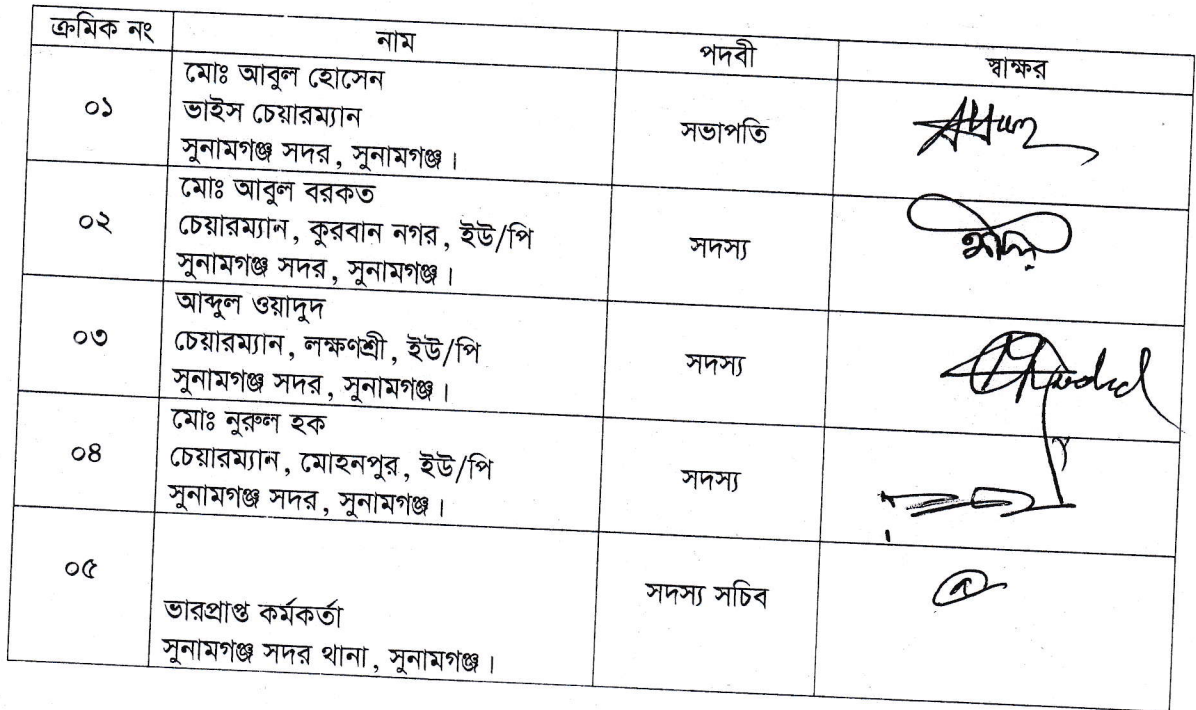 ক্রমিক নং নাম পদবী স্বাক্ষর
০১ মোঃ আবুল হোসেন
ভাইস চেয়ারম্যান
সুনামগঞ্জ সদর, সুনামগঞ্জ।
সভাপতি
০২ মোঃ আবুল বরকত
চেয়ারম্যান, কুরবান নগর, ইউ/পি
সুনামগঞ্জ সদর, সুনামগঞ্জ।
সদস্য
০৩ আব্দুল ওয়াদুদ
চেয়ারম্যান, লক্ষণশ্রী, ইউ/পি
সুনামগঞ্জ সদর, সুনামগঞ্জ।
সদস্য
০৪ মোঃ নুরুল হক
চেয়ারম্যান, মোহনপুর, ইউ/পি
সুনামগঞ্জ সদর, সুনামগঞ্জ।
সদস্য
০৫
ভারপ্রাপ্ত কর্মকর্তা
সুনামগঞ্জ সদর থানা, সুনামগঞ্জ।
সদস্য সচিব